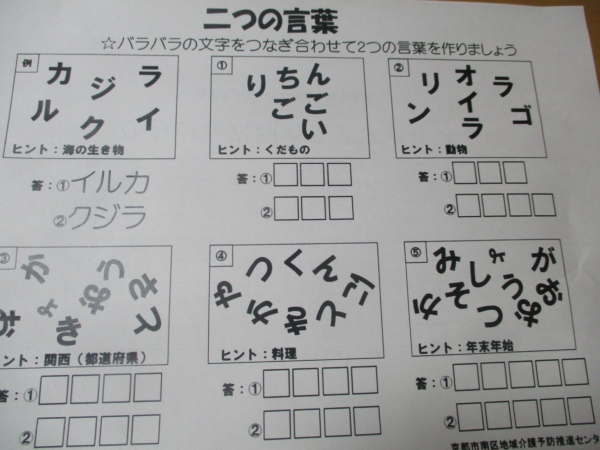 二つの言葉
☆バラバラの文字をつなぎ合わせて2つの言葉を作りましょう
例
カ ジ ラ
ル ク イ
ヒント：海の生き物
答：①イルカ
②クジラ
①
り ち ん
ご ご
い
ヒント：くだもの
答：①
②
②
リ オ ラ
ン イ ゴ
ラ
ヒント：動物
答：①
②
③
か お う さ
ょ
お き と
ント：関西（都道府県）
答：①
②
④
や つ く ん
か き と
ヒント：料理
答：①
②
⑤
み ょ が
そ し う お
か つ お
ヒント：年末年始
答：①
②
京都市南区地域介護予防推進センタ